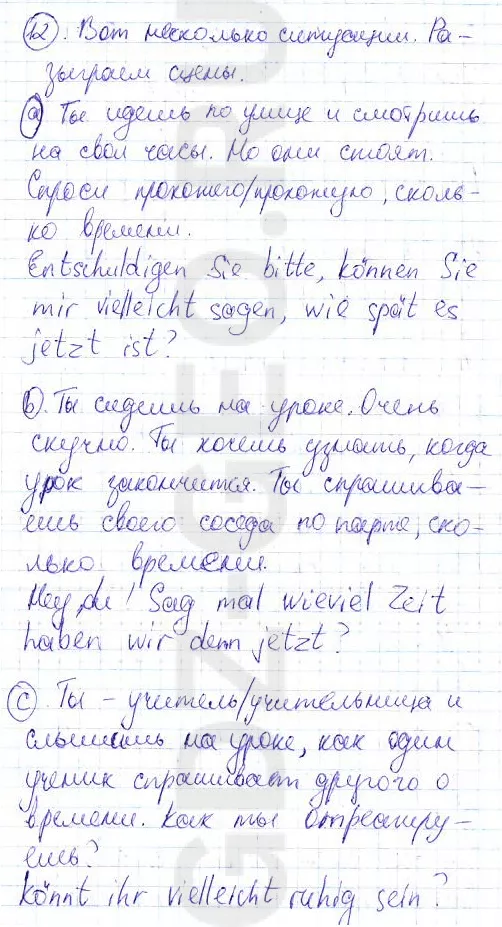 12). Вот несколько ситуаций. Ра-
зыграем сцены.
a) Ты идешь по улице и смотришь
на свои часы. Но они стоят.
Спроси прохожего/прохожую, сколь-
ко времени.
Entschuldigen Sie bitte, können Sie
mir vielleicht sagen, wie spät es
jetzt ist?
b). Ты сидишь на уроке. Очень
скучно. Ты хочешь узнать, когда
урок закончится. Ты спрашива-
ешь своего соседа по парте, ско-
лько времени.
Hey, du! Sag mal wieviel Zeit
haben wir denn jetzt?
c) Ты - учитель/учительница и
слышишь на уроке, как один
ученик спрашивает другого о
времени. Как ты отреагиру-
ешь?
Könnt ihr vielleicht ruhig sein?
GDZ-GEO.RU